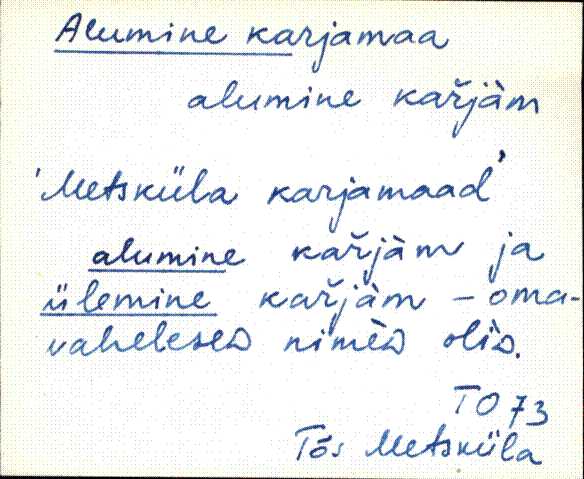 Alumine karjamaa
alumine kařjàm
'Metsküla karjamaad'
alumine kařjàm ja
ülemine kařjàm – oma-
vahelesed nimèd olìd.
TO 73
Tõs Metsküla